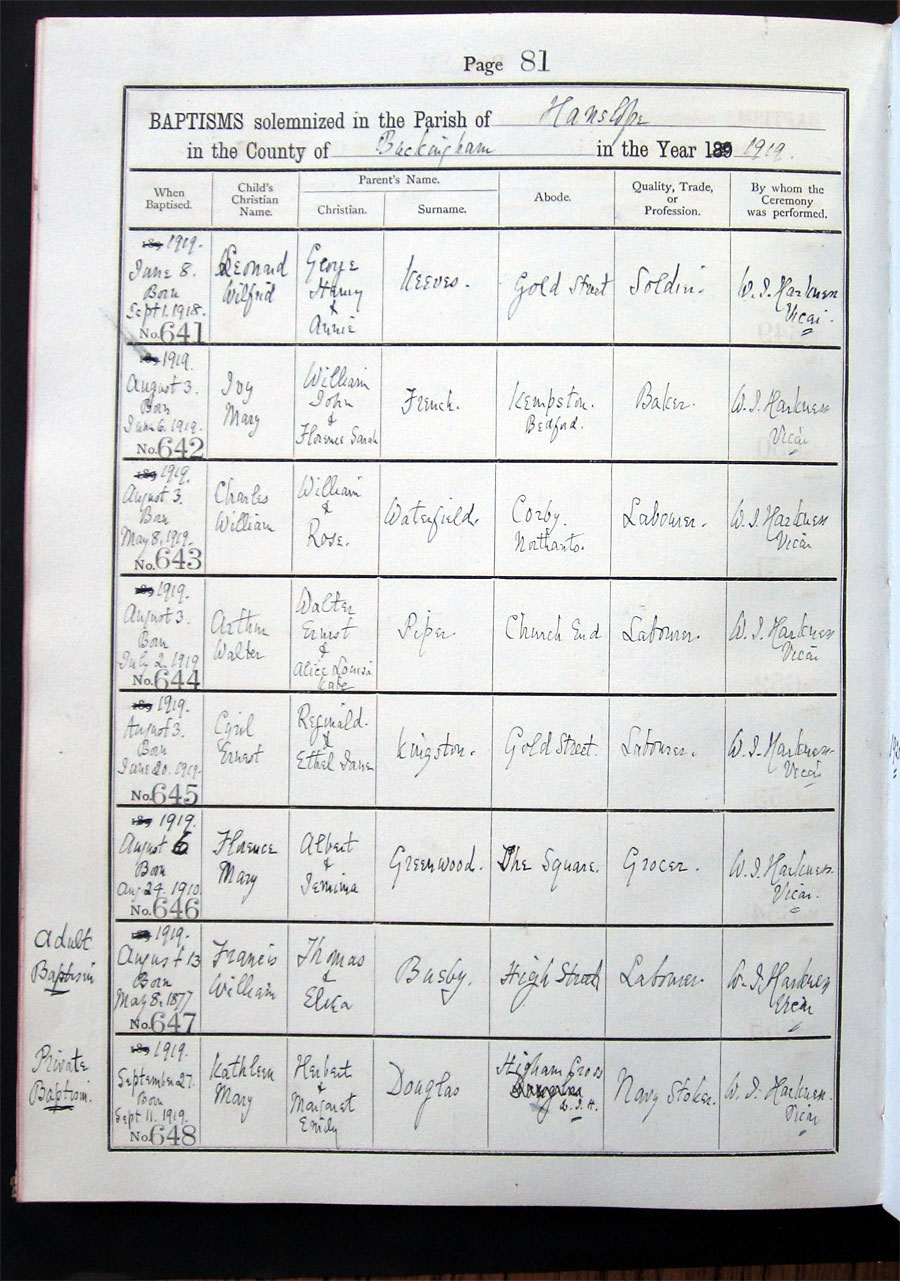 Page 81
BAPTISMS solemnized in the Parish of Hanslope
in the County of Buckingham in the Year 189 1919.
When Baptised.
Child's Christian Name.
Parent's Name.
Christian.
Surname.
Abode.
Quality, Trade, or Profession.
By whom the Ceremony was performed.
189 1919.
June 8.
Born
Sept 1. 1918.
No. 641
Leonard
Wilfrid
George
Henry
&
Annie
Reeves.
Gold Street
Soldier.
W. J. Harkness
Vicar.
189 1919.
August 3.
Born
June 6. 1919.
No. 642
Ivy
Mary
William
John
&
Florence Sarah
French.
Kempston.
Bedford.
Baker.
W. J. Harkness
Vicar
189 1919.
August 3.
Born
May 8. 1919.
No. 643
Charles
William
William
&
Rose.
Waterfield.
Corby.
Northants.
Labourer.
W. J. Harkness
Vicar
189 1919.
August 3.
Born
July 2. 1919
No. 644
Arthur
Walter
Walter
Ernest
&
Alice Louisa
Kate
Piper.
Church End
Labourer.
W. J. Harkness
Vicar
189 1919.
August 3.
Born
June 20. 1919.
No. 645
Cyril
Ernest
Reginald.
&
Ethel Jane
Kingston.
Gold Street.
Labourer.
W. J. Harkness
Vicar
189 1919.
August 6
Born
Aug 24. 1910.
No. 646
Florence
Mary
Albert
&
Jemima
Greenwood.
The Square.
Grocer.
W. J. Harkness
Vicar.
Adult
Baptism
189 1919.
August 13
Born
May 8. 1877
No. 647
Francis
William
Thomas
&
Eliza
Busby.
High Street
Labourer.
W. J. Harkness
Vicar
Private
Baptism.
189 1919.
September 27.
Born
Sept 11. 1919.
No. 648
Kathleen
Mary
Herbert
&
Margaret
Emily
Douglas
Higham Cross
W. J. H.
Navy Stoker.
W. J. Harkness.
Vicar